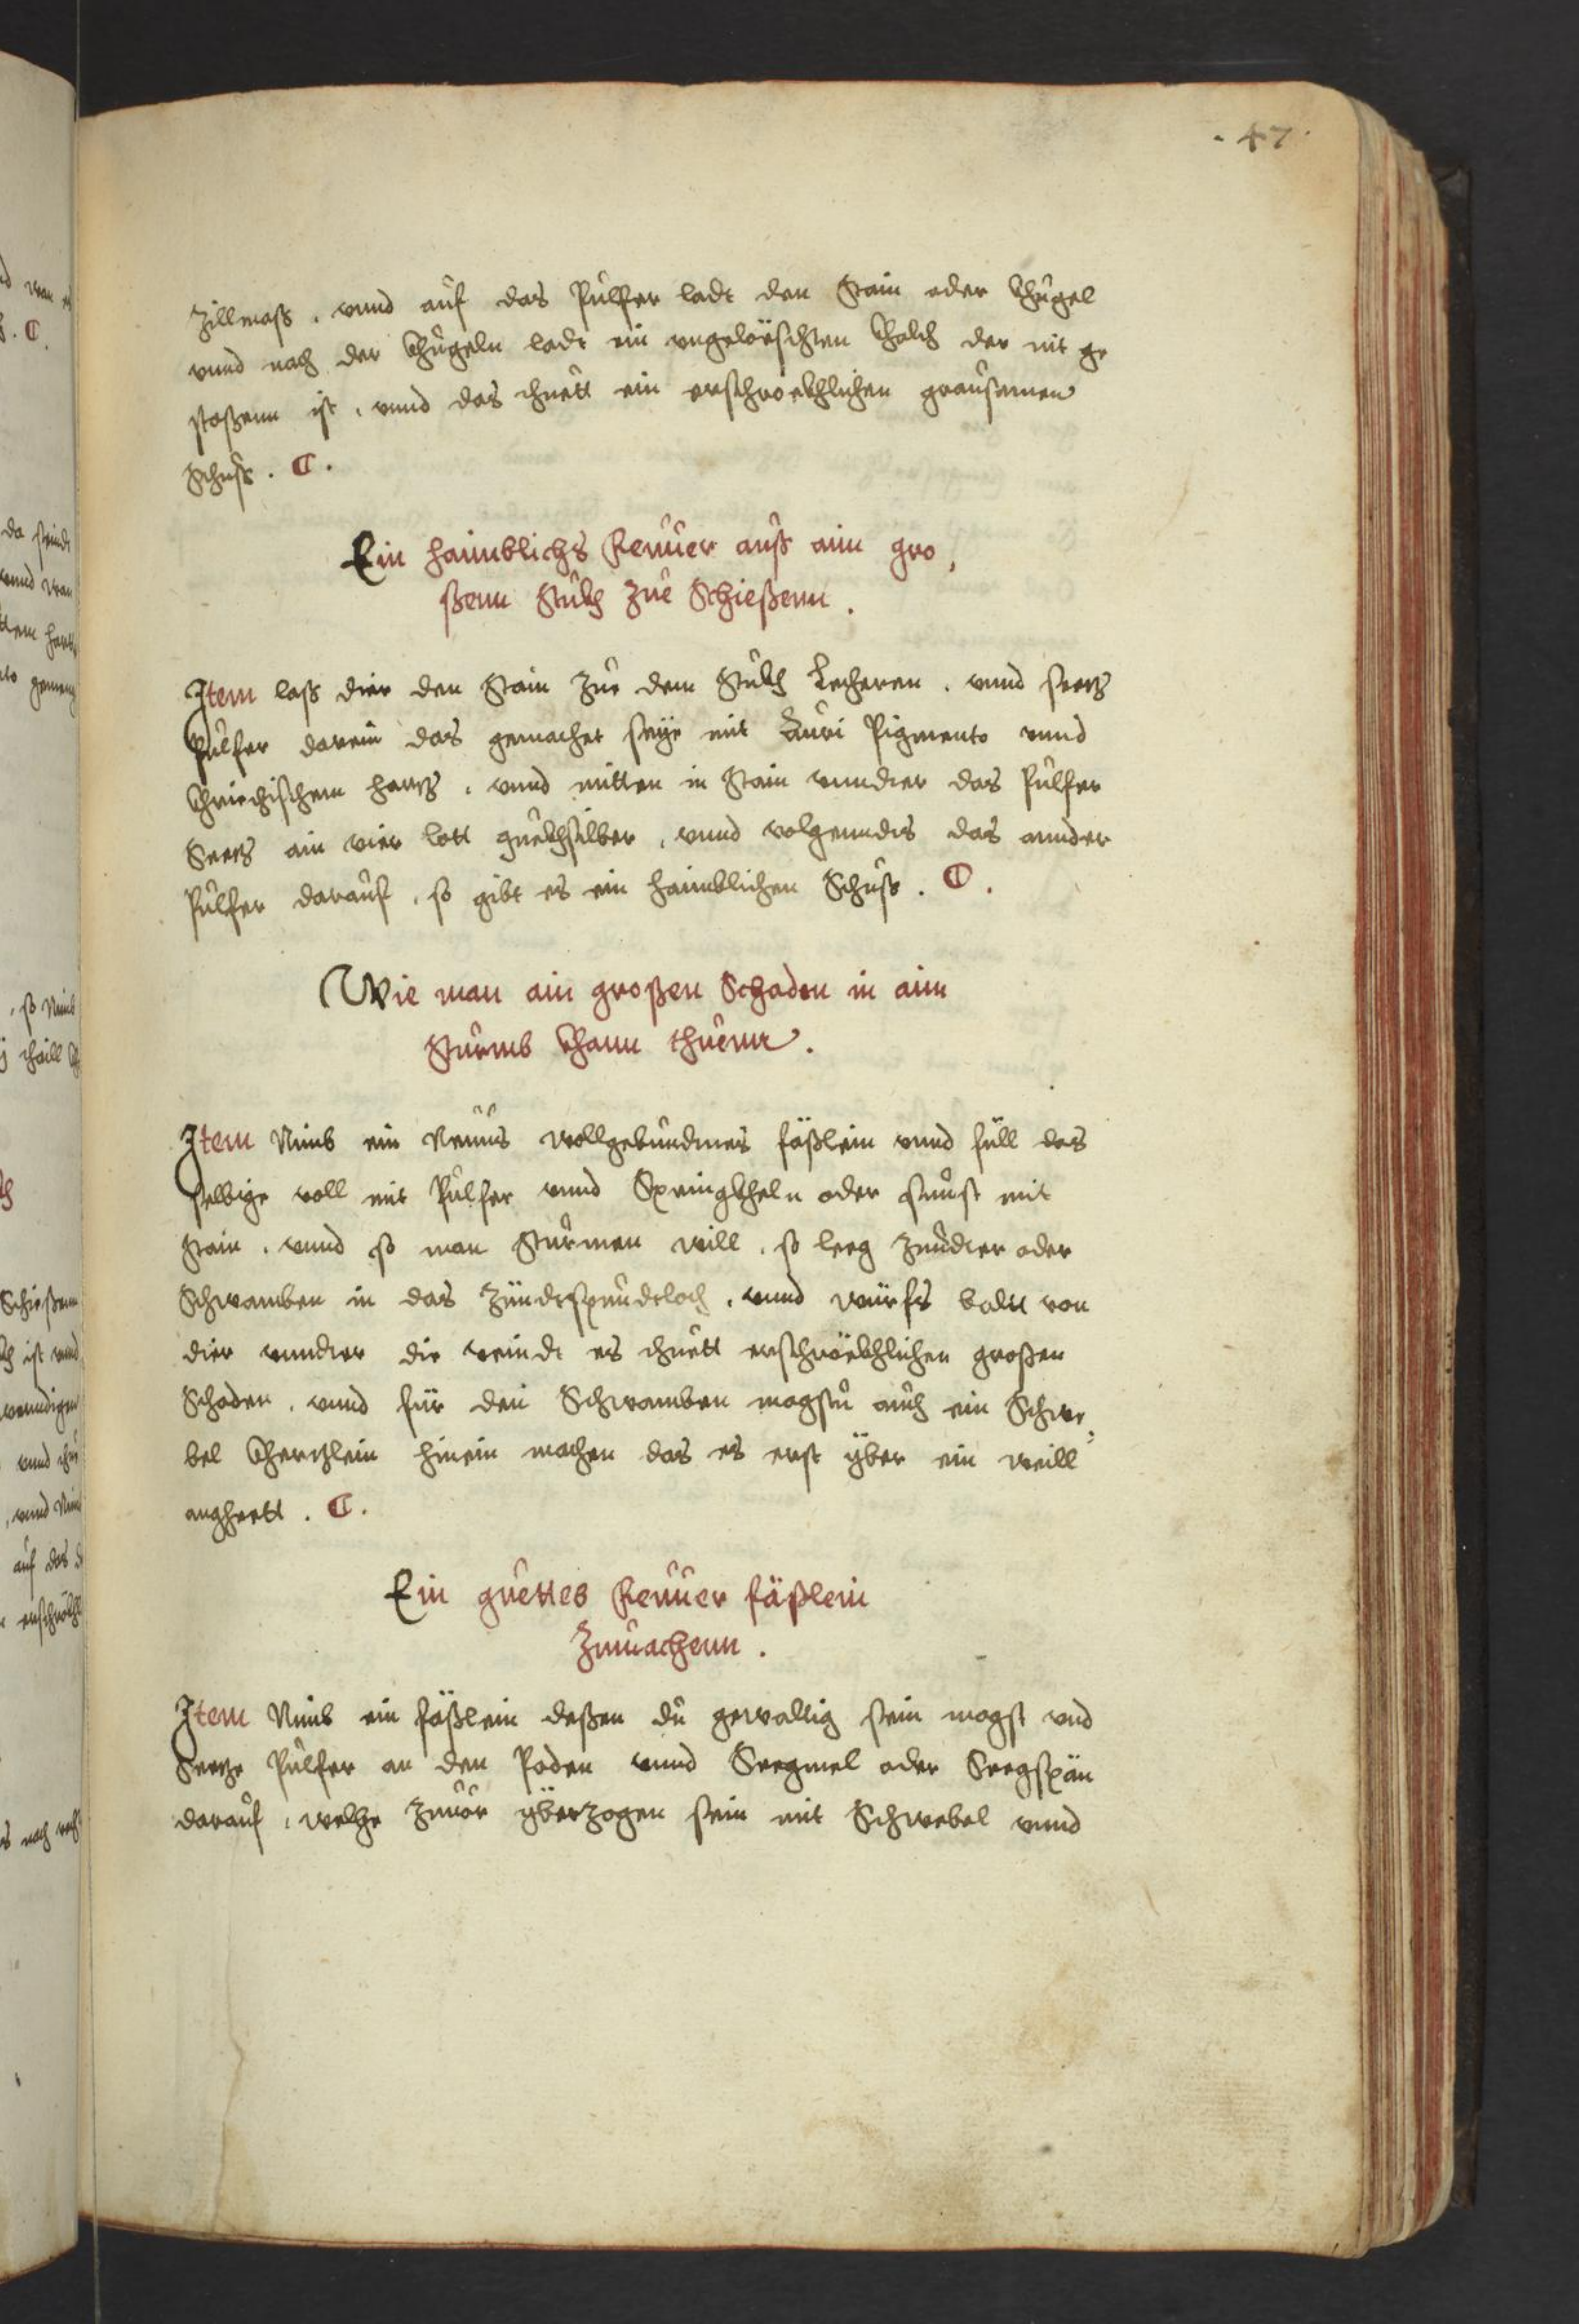 . 47 .
Zillmaß . vnnd auf das Pulffer ladt den Stain oder khugel
vnnd nach der khugeln ladt ein vngelöeschten khalch der nit ge
stoßenn ist , vnnd das thuett ein erschröckhlichen grausamen
Schuß . C .
Ein haimblichs Feuuer auß aim gro,
ßenn Stukh zue Schießenn .
Item laß dier den Stain zue dem Stukh Lecheren . vnnd seetz
Pulfer darein das gemachet seye mit Auri Pigmento vnnd
khriechischem hartz , vnnd mitten in Stain vnndter das Pulfer
Seetz ain vier lott quekhsilber , vnnd volgenndts das annder
Pulfer darauf , so gibt es ein haimblichen Schuß . C .
Wie man ain großen Schaden in aim
Sturmb khann thuenn .
Item Nimb ein Neuus wollgebundnes fäßlein vnnd füll das
selbige voll mit Pulfer vnnd Springkheln oder sunst mit
Stain . vnnd so man Sturmen will , so leeg Zundter oder
Schwamben in das Zündtspundtloch , vnnd würfs baldt von
dier vnndter die veindt es thuett erschröekhlichen großen
Schaden , vnnd für den Schwamben magstu auch ein Schwe,
bel kherzlein hinein machen das es erst yber ein weill
anghett . C .
Ein guettes Feuuer fäßlein
Zumachenn .
Item Nimb ein fäßlein deßen du gewaltig sein magst vnd
Seetze Pulfer an den Poden vnnd Seegmel oder Seegspän
darauf , welche zuuor yberzogen sein mit Schwebel vnnd